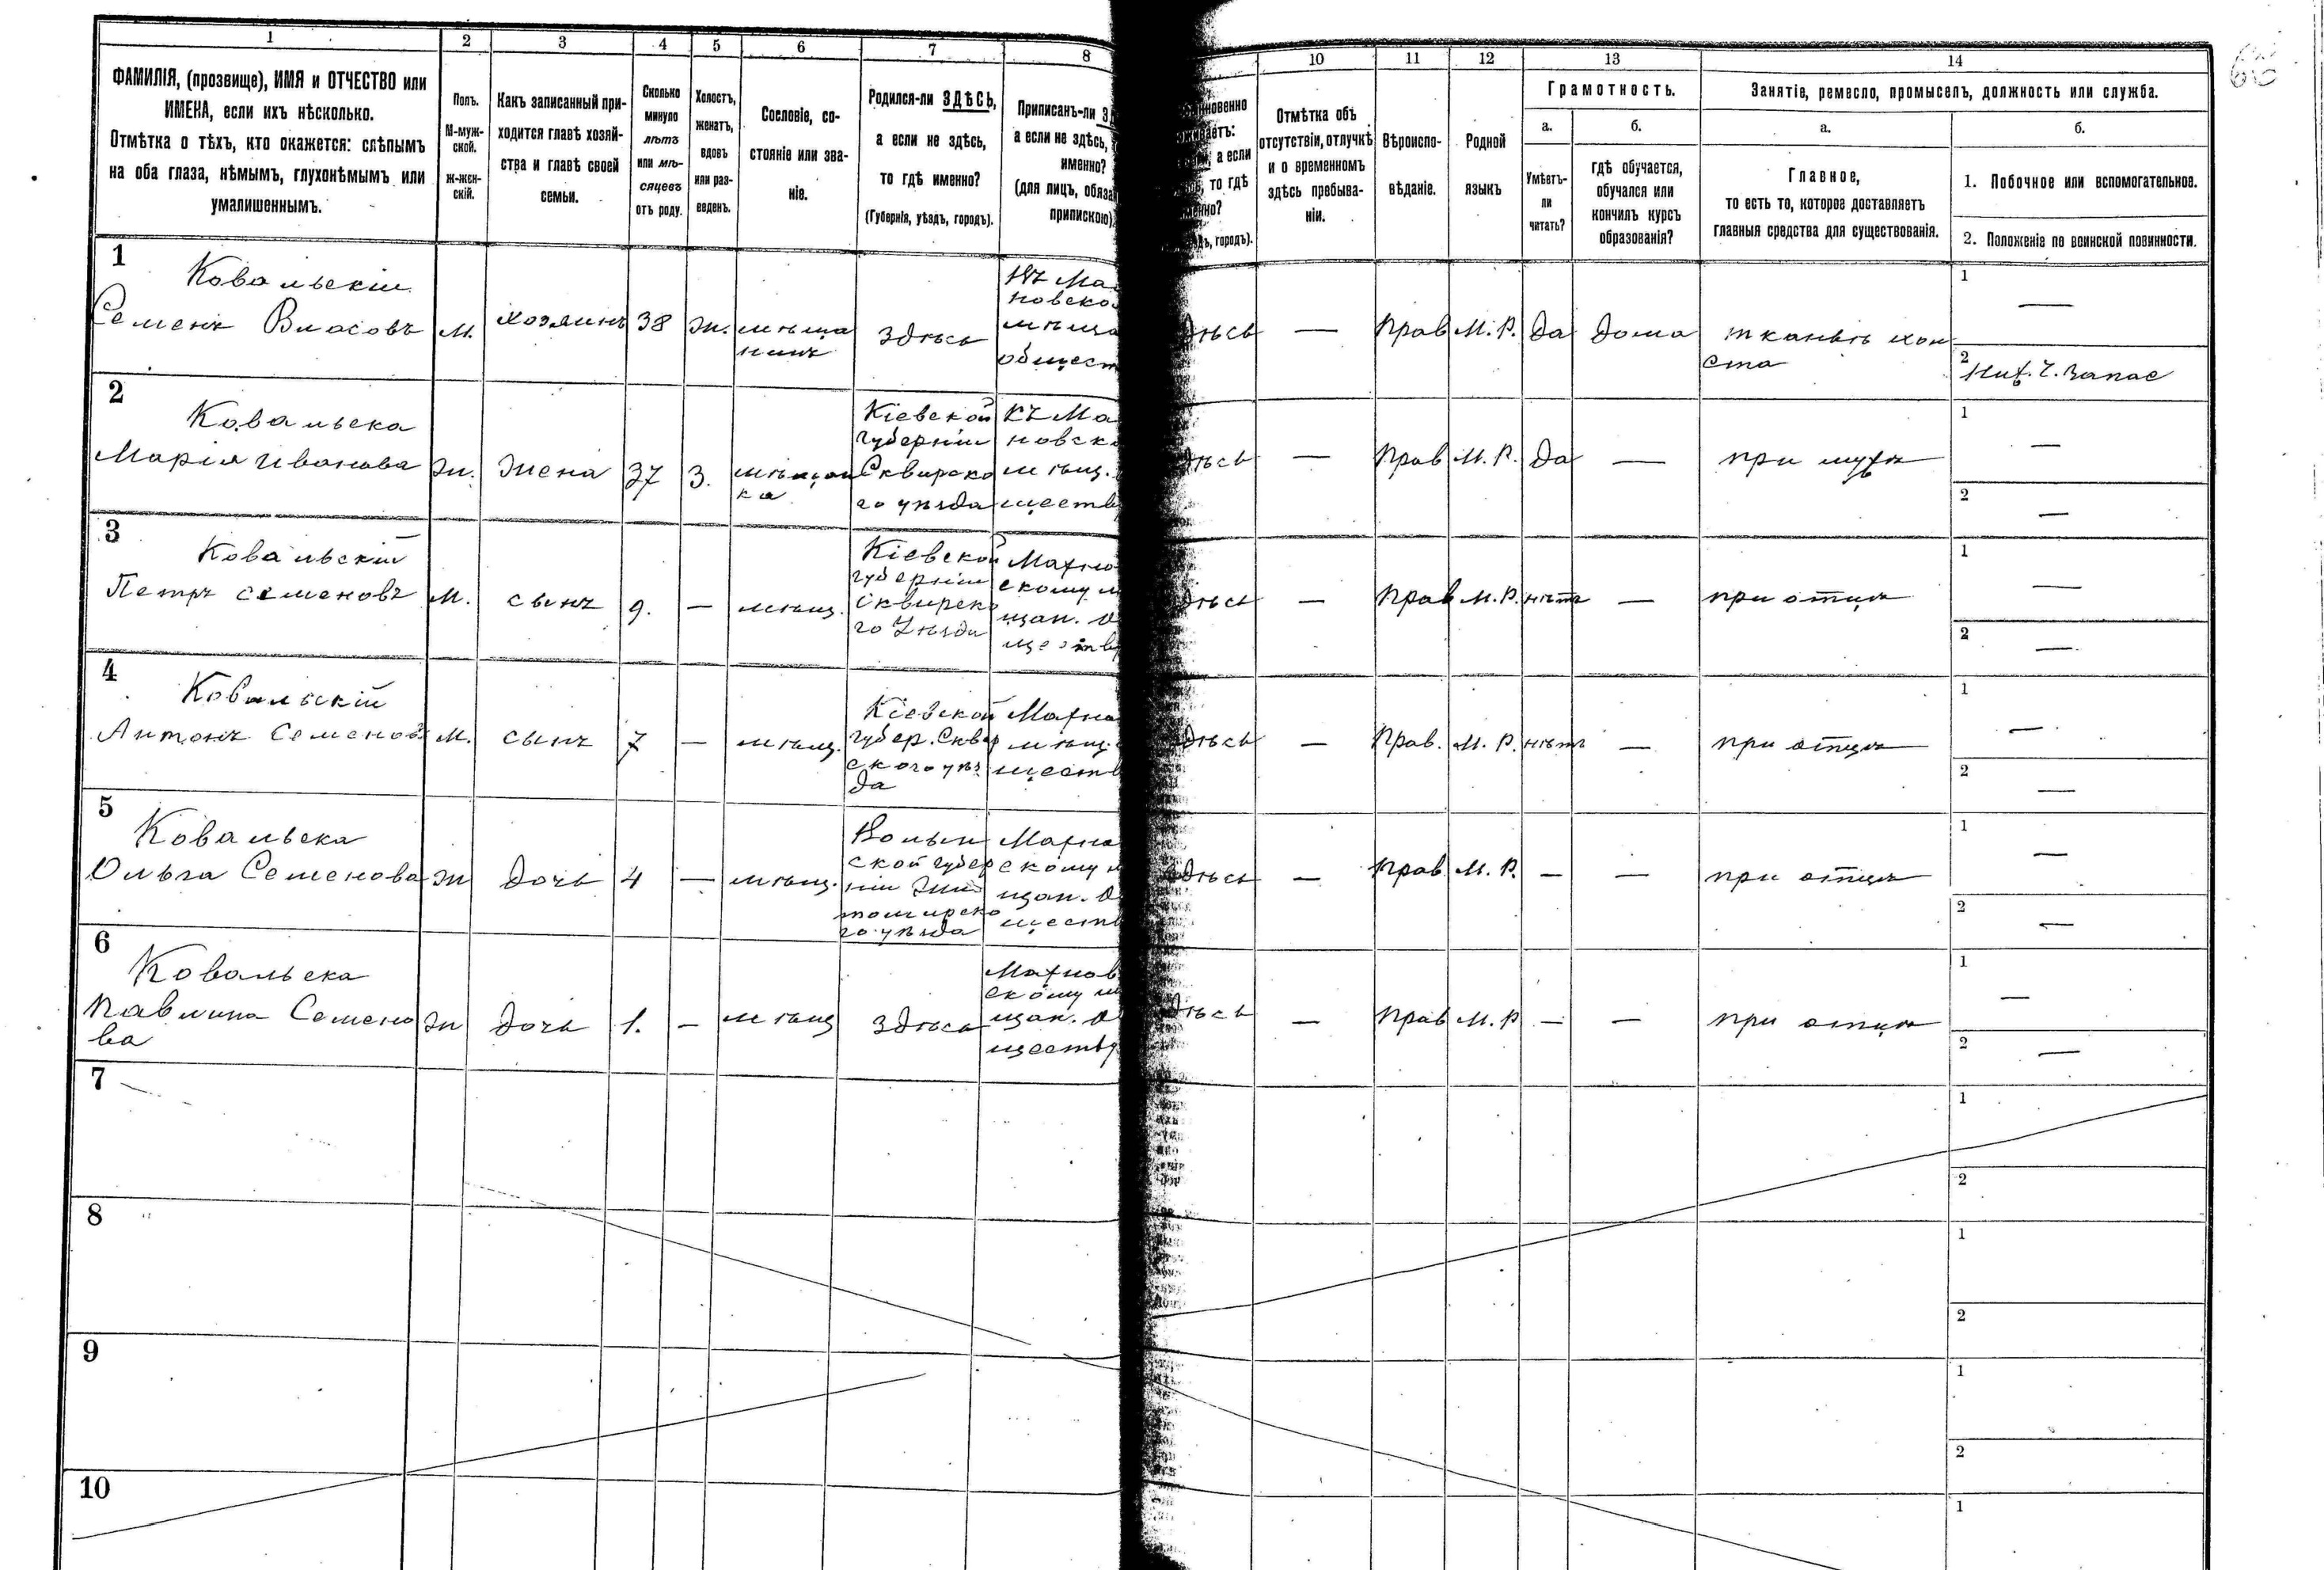 1 2 3 4 5 6 7 8 10 11 12 13 14
ФАМИЛІЯ, (прозвище), ИМЯ и ОТЧЕСТВО или
ИМЕНА, если ихъ нѣсколько.
Отмѣтка о тѣхъ, кто окажется: слѣпымъ
на оба глаза, нѣмымъ, глухонѣмымъ или
умалишеннымъ.
Полъ.
М-муж-
ской.
Ж-жен-
скій.
Какъ записанный при-
ходится главѣ хозяй-
ства и главѣ своей
семьи.
Сколько
минуло
лѣтъ
или мѣ-
сяцевъ
отъ роду.
Холостъ,
женатъ,
вдовъ
или раз-
веденъ.
Сословіе, со-
стояніе или зва-
ніе.
Родился-ли ЗДѢСЬ,
а если не здѣсь,
то гдѣ именно?
(Губернія, уѣздъ, городъ).
Приписанъ-ли
а если не здѣсь,
именно?
(для лицъ, обяза
припискою)
а если
то гдѣ
городъ).
Отмѣтка объ
отсутствіи, отлучкѣ
и о временномъ
здѣсь пребыва-
ніи.
Вѣроиспо-
вѣданіе.
Родной
языкъ
Грамотность.
а.
Умѣетъ-
ли
читать?
б.
гдѣ обучается,
обучался или
кончилъ курсъ
образованія?
Занятіе, ремесло, промыселъ, должность или служба.
а.
Главное,
то есть то, которое доставляетъ
главныя средства для существованія.
б.
1. Побочное или вспомогательное.
2. Положеніе по воинской повинности.
1
Ковальскій
Семенъ Власовъ
М.
хозяинъ
38
ж.
мѣща
нинъ
здѣсь
Къ Ма
новско
мѣща
общест
дѣсь
—
Прав
М. Р.
Да
дома
тканьѣ хол
ста
1
—
2
Ниж. Ч. Запас
2
Ковальска
Марія Иванова
Ж.
жена
37
З.
мѣщан
ка
Кіевской
губерніи
Сквирско
го уѣзда
Къ Ма
новск
мѣщ.
ществ
дѣсь
—
Прав
М. Р.
Да
—
при мужѣ
1
—
2
—
3
Ковальскій
Петръ Семеновъ
М.
сынъ
9.
—
мѣщ.
Кіевской
губерніи
Сквирско
го Уѣзда
Махно
скому м
щан. О
ществ
дѣсь
—
Прав
М. Р.
нѣтъ
—
при отцѣ
1
—
2
—
4
Ковальскій
Антонъ Семеновъ
М.
сынъ
7
—
мѣщ.
Кіевской
губер. Сквир
ского уѣз
да
Махно
мѣщ.
ществ
дѣсь
—
Прав.
М. Р.
нѣтъ
—
при отцѣ
1
—
2
—
5
Ковальска
Ольга Семенова
Ж
дочь
4
—
мѣщ.
Волын
ской губер
ніи Жи
томирско
го уѣзда
Махно
скому м
щан. О
ществ
дѣсь
—
Прав
М. Р.
—
—
при отцѣ
1
—
2
—
6
Ковальска
Павлина Семено
ва
Ж
дочь
1.
—
мѣщ
здѣсь
Махнов
скому м
щан. О
ществу
дѣсь
—
Прав
М. Р
—
—
при отцѣ
1
—
2
—
7
1
2
8
1
2
9
1
2
10
1